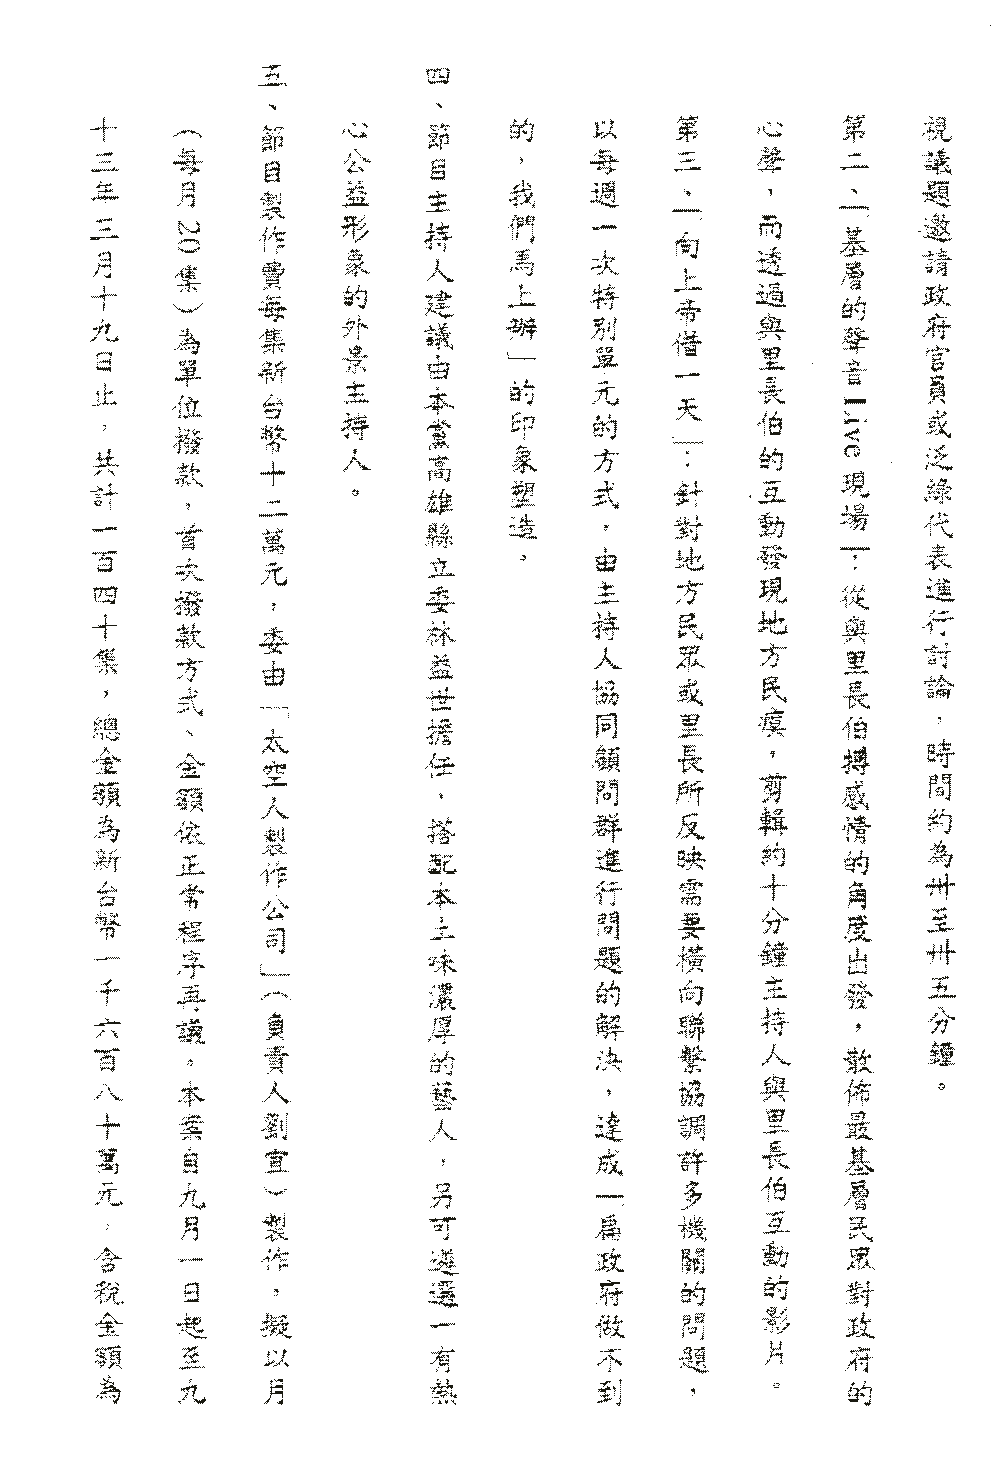 視議題邀請政府官員或泛綠代表進行討論，時間約為卅至卅五分鐘。
第二、「基層的聲音Live現場」：從與里長伯搏感情的角度出發，散佈最基層民眾對政府的
心聲，而透過與里長伯的互動發現地方民瘼，剪輯約十分鐘主持人與里長伯互動的影片。
第三、「向上帝借一天」：針對地方民眾或里長所反映需要橫向聯繫協調許多機關的問題，
以每週一次特別單元的方式，由主持人協同顧問群進行問題的解決，達成「扁政府做不到
的，我們馬上辦」的印象塑造。
四、節目主持人建議由本黨高雄縣立委林益世擔任，搭配本土味濃厚的藝人，另可遴選一有熱
心公益形象的外景主持人。
五、節目製作費每集新台幣十二萬元，委由「太空人製作公司」（負責人劉宜）製作，擬以月
（每月20集）為單位撥款，首次撥款方式、金額依正常程序再議，本案自九月一日起至九
十三年三月十九日止，共計一百四十集，總金額為新台幣一千六百八十萬元，含稅金額為